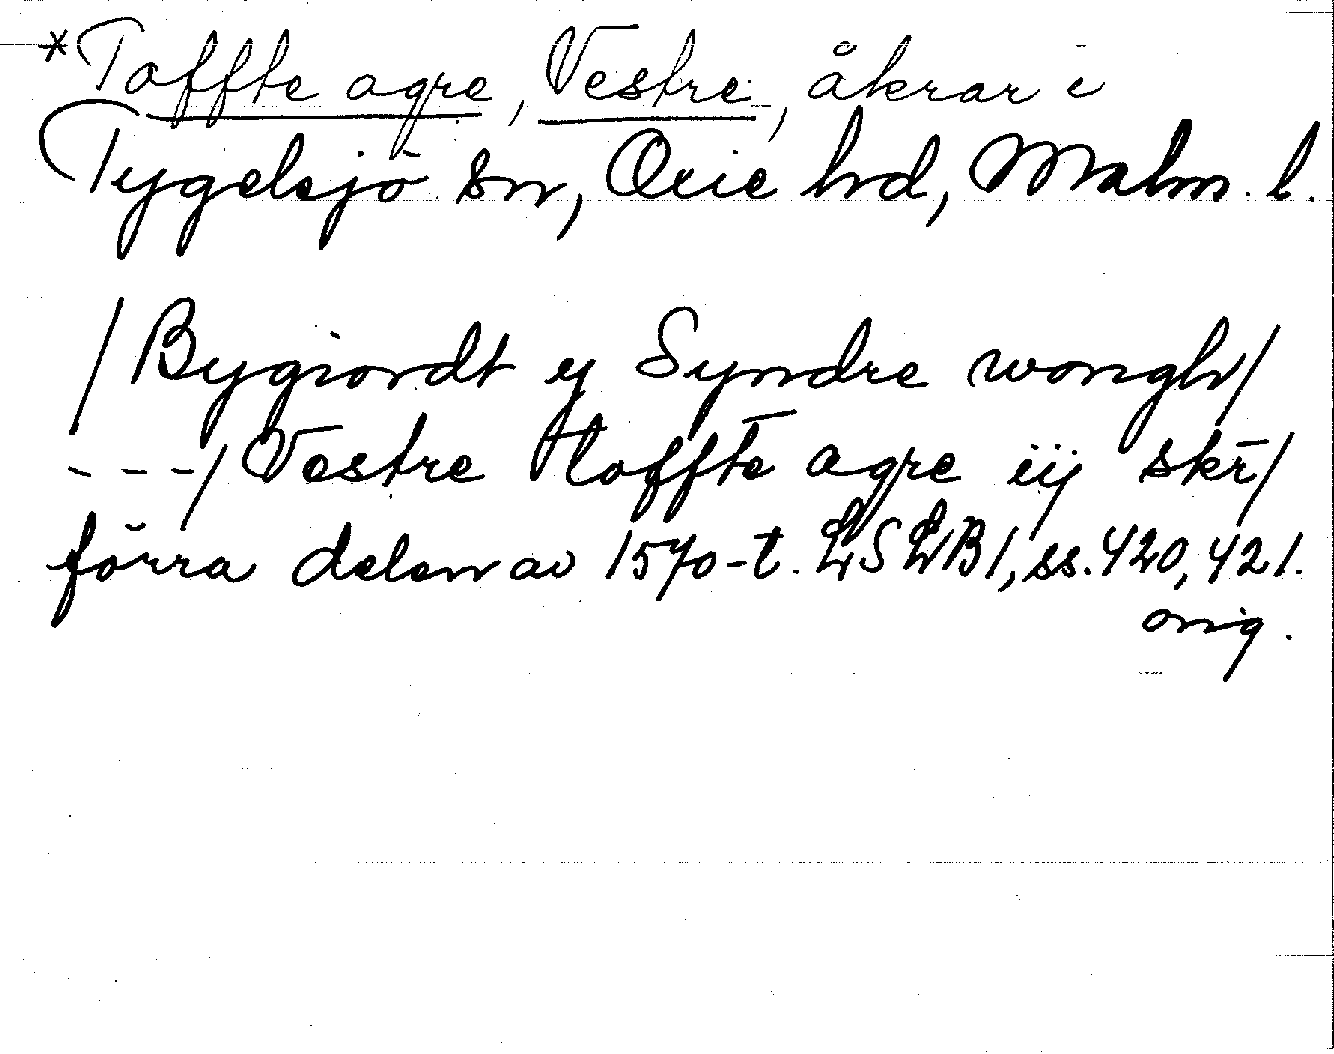 *Toffte agre, Vestre, åkrar i
Tygelsjö sn, Oxie hd, Malm. l.
/Bygiordt ij Syndre wongh/
---/Vestre toffte agre iij skr̄/
förra delen av 1570-t. LSLB1, ss. 420, 421.
orig.